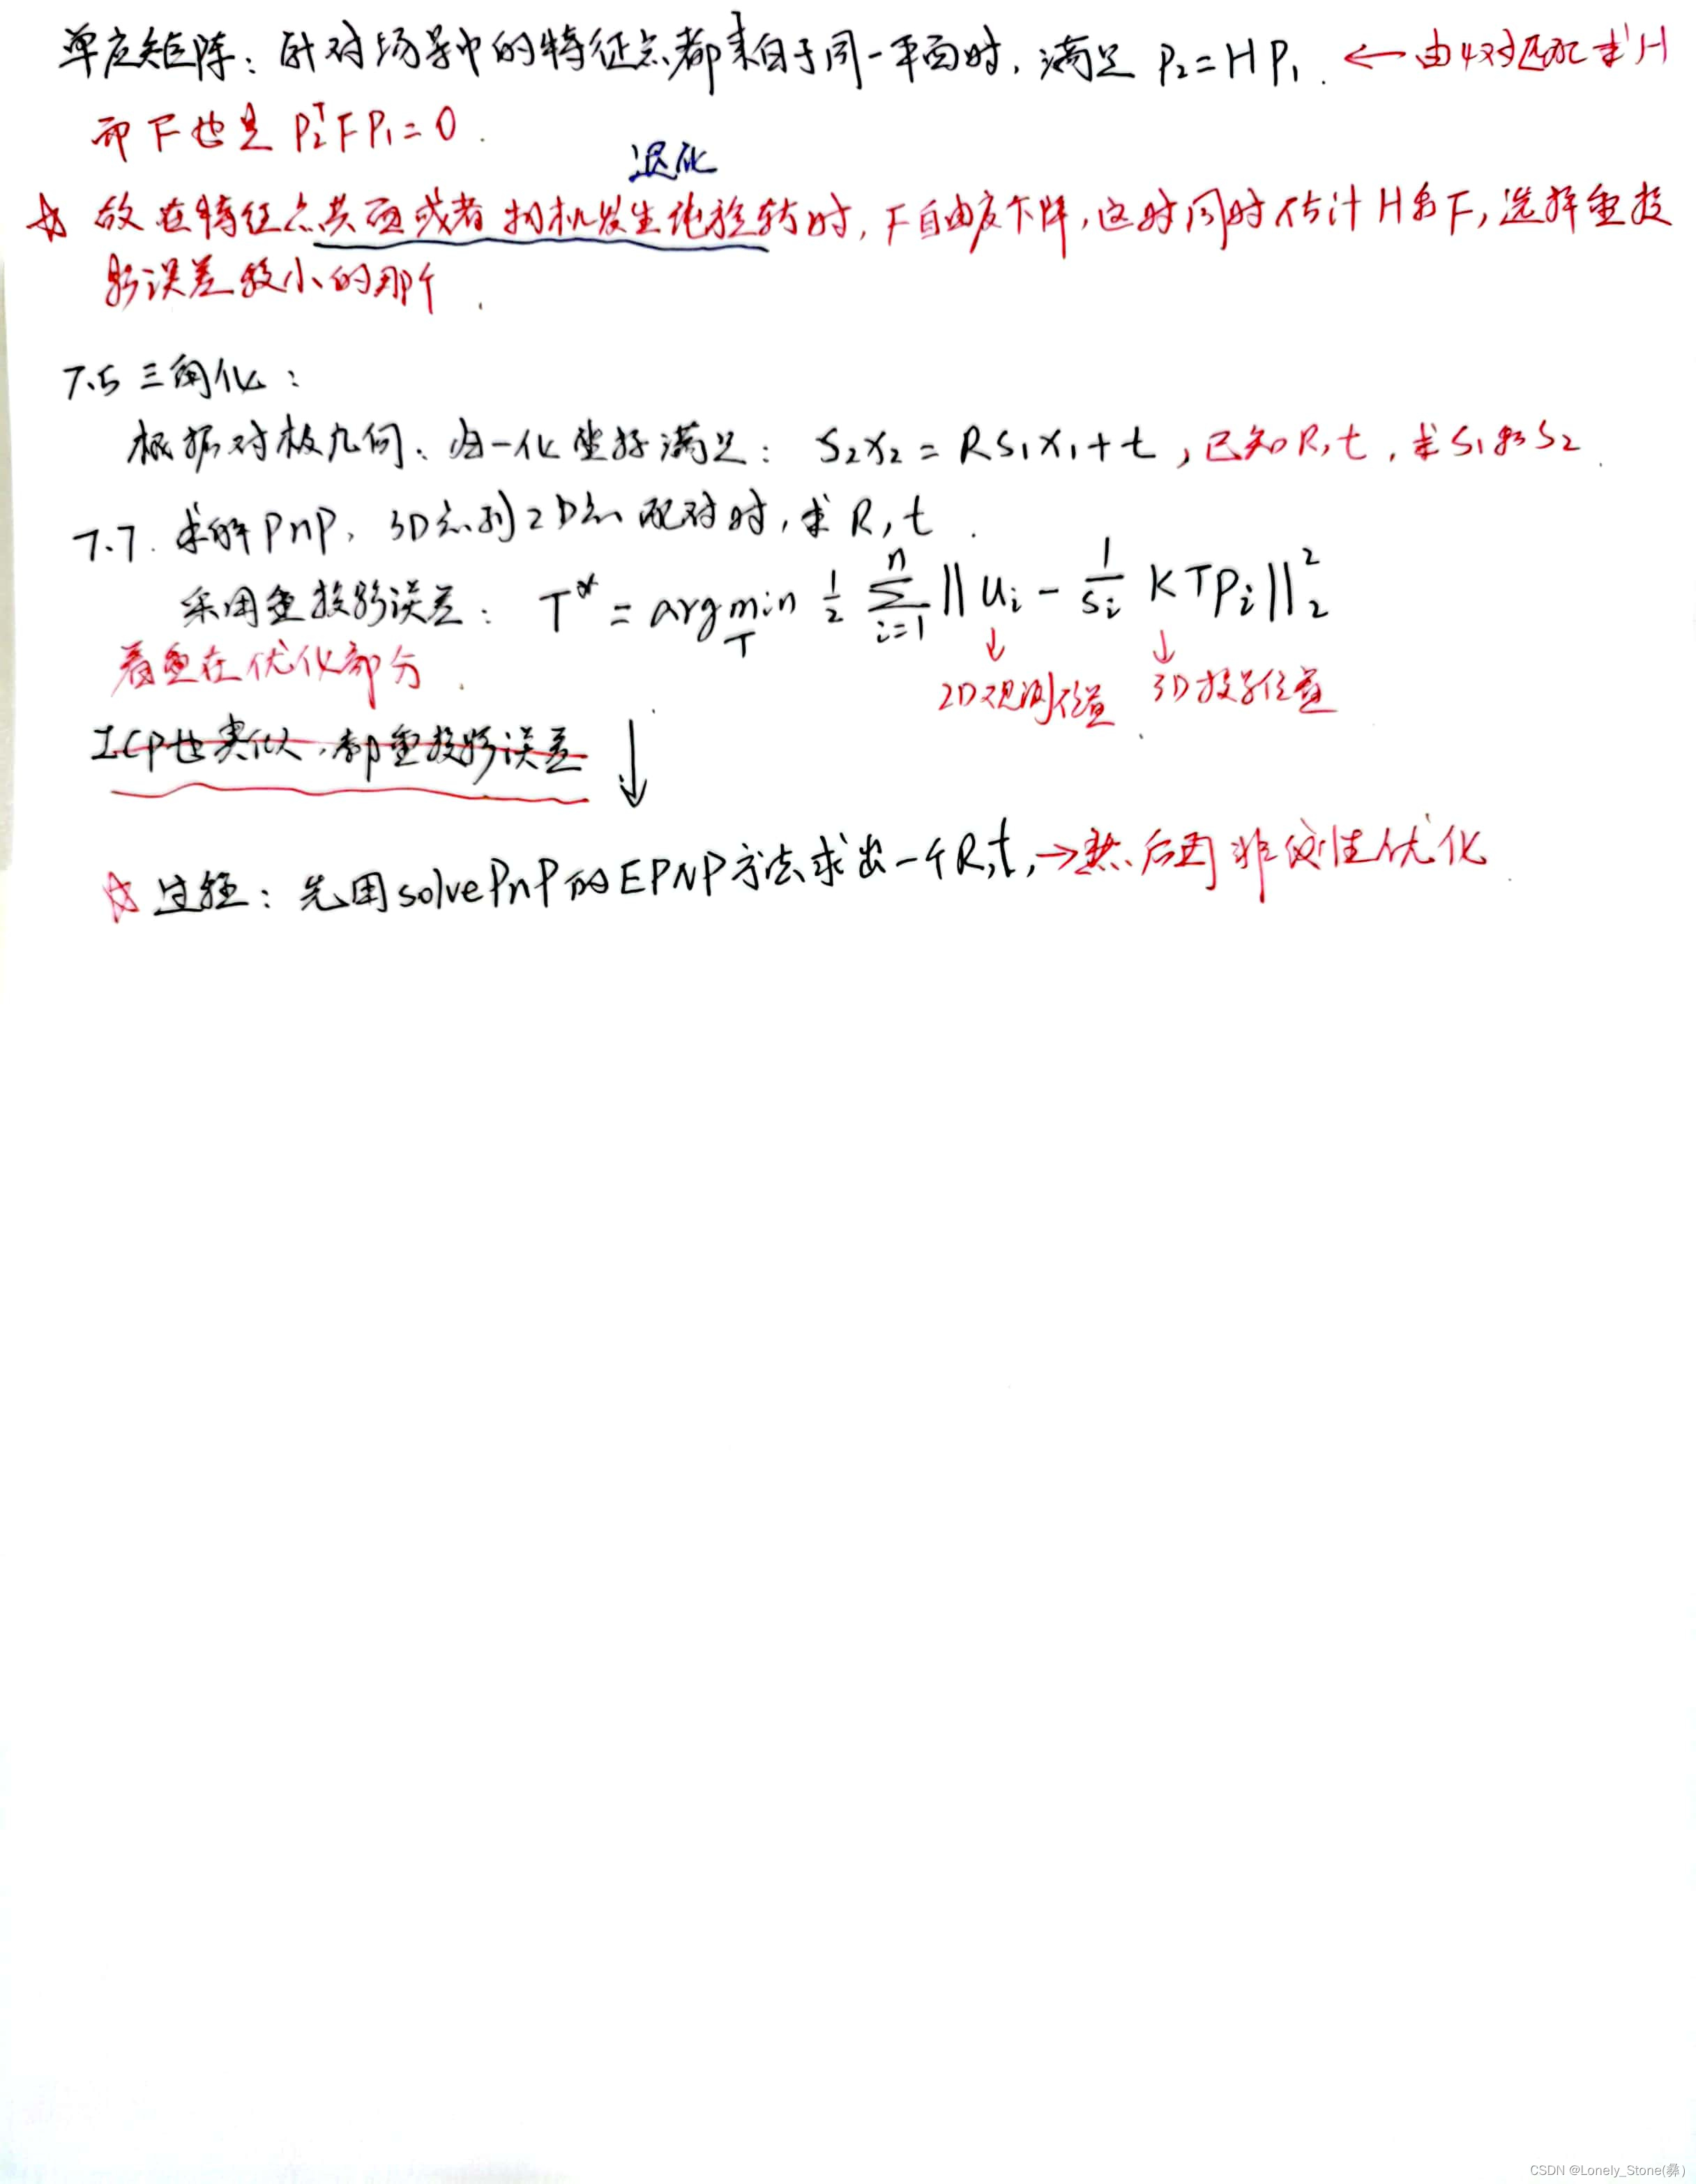 单应矩阵：针对场景中的特征点都来自于同一平面时，满足 P₂=HP₁. ← 由4对匹配求H
而F也是 P₂ᵀFP₁=0.
退化
☆ 故在特征点共面或者相机发生纯旋转时，F自由度下降，这时同时估计H和F，选择重投
影误差较小的那个.
7.5 三角化：
根据对极几何、归一化坐标满足： S₂x₂ = RS₁x₁+t，已知R,t，求S₁和S₂.
7.7. 求解PnP、3D点到2D点配对时，求R,t.
采用重投影误差： T* = arg min_T 1/2 Σ_{i=1}^{n} ||u_i - 1/s_i KTp_i||₂²
↓ ↓
着重在优化部分.
2D观测位置 3D投影位置
ICP也类似，都重投影误差 ↓
☆ 过程：先用solvePnP的EPNP方法求出一个R,t, →然后用非线性优化.
CSDN @Lonely_Stone(彝)